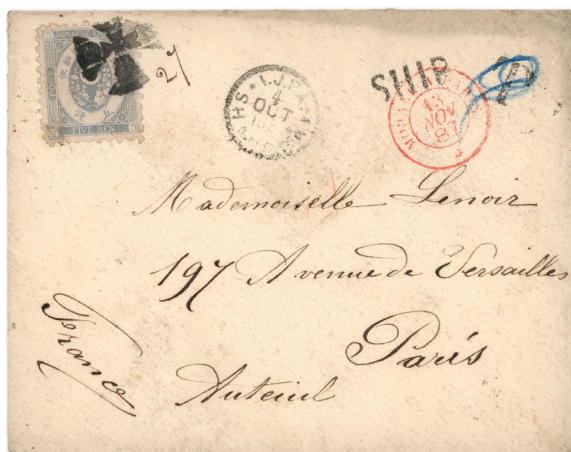 FIVE SEN
I.J.P.A.
4
OCT
SHIP
13
NOV
87
Mademoiselle Lenoir
197 Avenue de Versailles
Paris
Auteuil
France